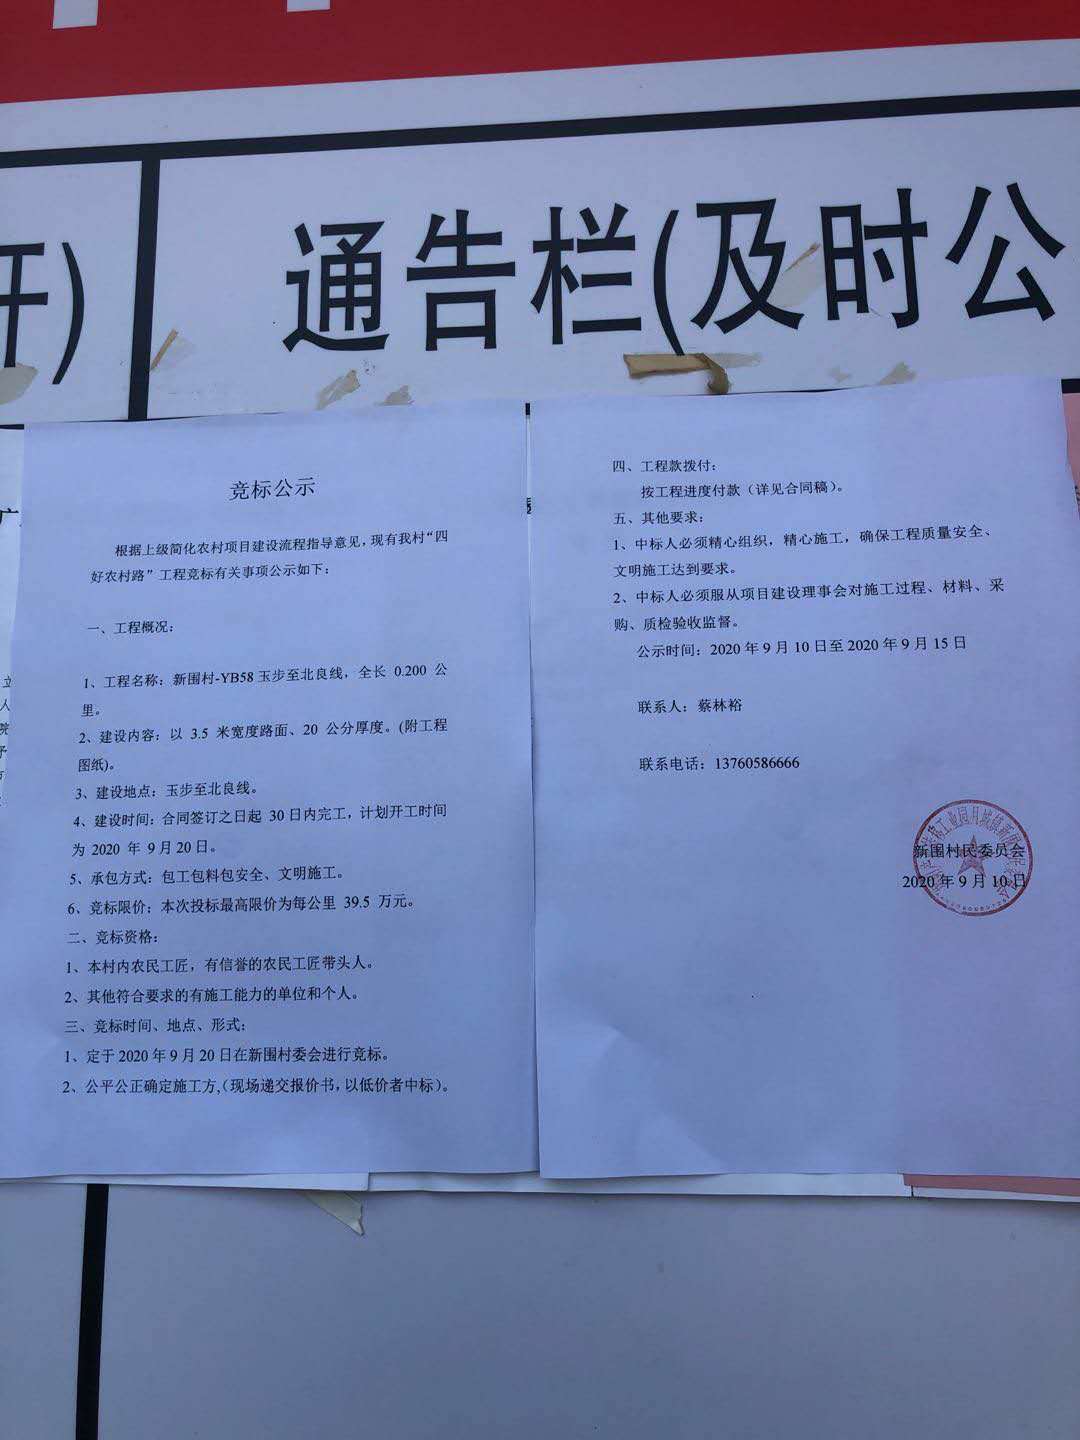 开)
通告栏(及时公
竞标公示
根据上级简化农村项目建设流程指导意见，现有我村“四
好农村路”工程竞标有关事项公示如下：
一、工程概况：
1、工程名称：新围村-YB58玉步至北良线，全长 0.200 公
里。
2、建设内容：以 3.5 米宽度路面、20 公分厚度。(附工程
图纸)。
3、建设地点：玉步至北良线。
4、建设时间：合同签订之日起 30日内完工，计划开工时间
为 2020 年 9月20日。
5、承包方式：包工包料包安全、文明施工。
6、竞标限价：本次投标最高限价为每公里 39.5 万元。
二、竞标资格：
1、本村内农民工匠，有信誉的农民工匠带头人。
2、其他符合要求的有施工能力的单位和个人。
三、竞标时间、地点、形式：
1、定于2020年9月20日在新围村委会进行竞标。
2、公平公正确定施工方,（现场递交报价书，以低价者中标）。
四、工程款拨付：
按工程进度付款（详见合同稿）。
五、其他要求：
1、中标人必须精心组织，精心施工，确保工程质量安全、
文明施工达到要求。
2、中标人必须服从项目建设理事会对施工过程、材料、采
购、质检验收监督。
公示时间：2020年9月10日至2020年9月15日
联系人：蔡林裕
联系电话：13760586666
新围村民委员会
2020年9月10日